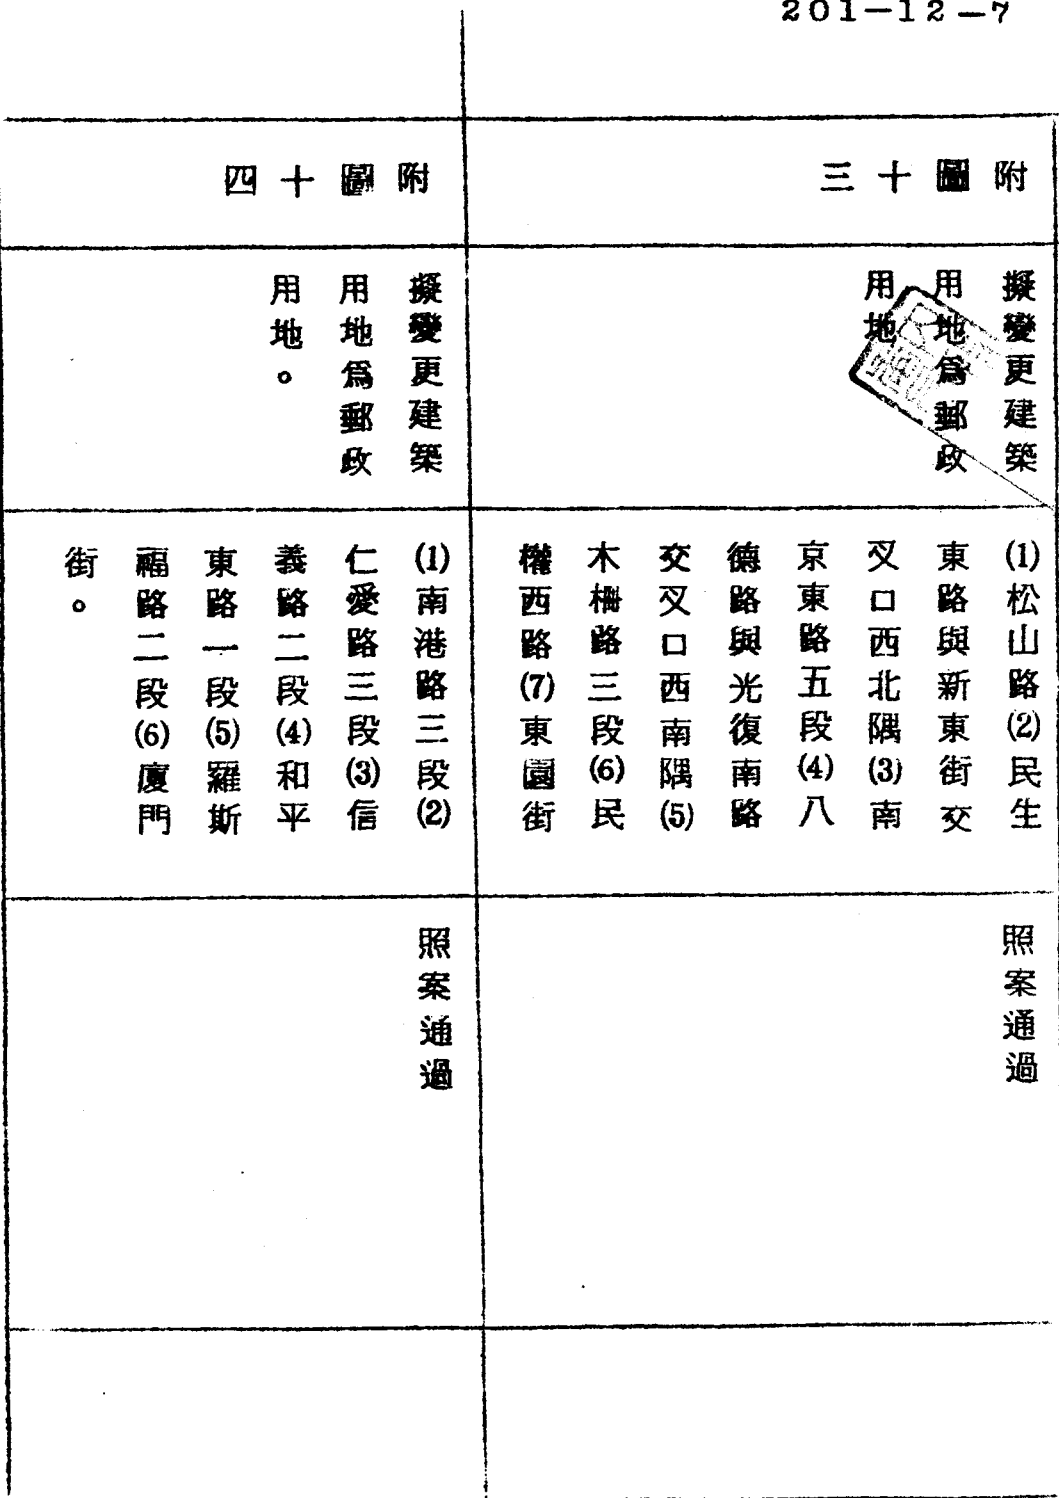 201-12-7
附圖十三
擬變更建築
用地為郵政
用地
(1)松山路(2)民生
東路與新東街交
叉口西北隅(3)南
京東路五段(4)八
德路與光復南路
交叉口西南隅(5)
木柵路三段(6)民
權西路(7)東園街
照案通過
附圖十四
擬變更建築
用地為郵政
用地。
(1)南港路三段(2)
仁愛路三段(3)信
義路二段(4)和平
東路一段(5)羅斯
福路二段(6)廈門
街。
照案通過